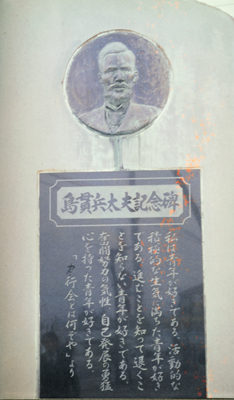 島貫兵太夫記念碑
私は青年が好きである。活動的な
積極的な生気に満ちた青年が好き
である。進むことを知って退くこ
とを知らない青年が好きである。
奮闘努力の気性 自己発展の勇猛
心を持った青年が好きである。
「力行会とは何ぞや」より